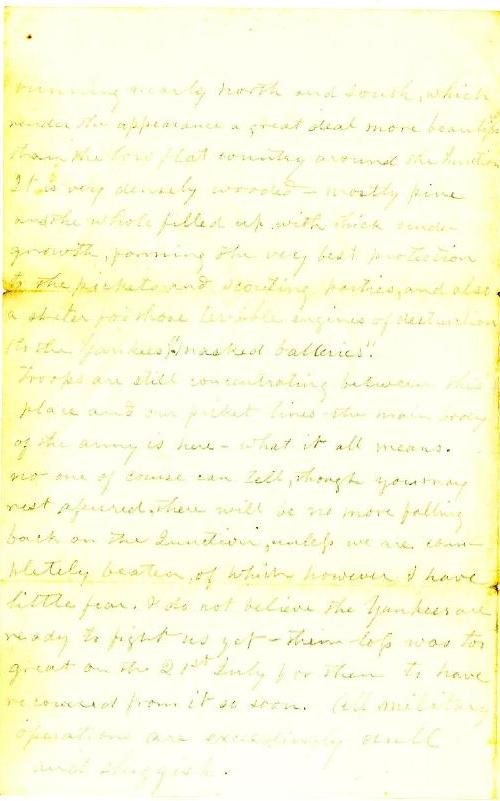 running nearly North and South, which
render the appearance a great deal more beautiful
than the low flat country around the Junction
It is very densely wooded - mostly pine
and the whole filled up with thick under
growth, forming the very best protection
to the pickets and scouting parties, and also
a shelter for those terrible engines of destruction
(to the Yankees) "masked batteries".
Troops are still concentrating between this
place and our picket lines - the main body
of the army is here - what it all means.
no one of course can tell, though you may
rest assured, there will be no more falling
back on the Junction, unless we are com-
pletely beaten, of which however I have
little fear. I do not believe the Yankees are
ready to fight us yet - their loss was too
great on the 21st July for them to have
recovered from it so soon. All military
operations are exceedingly dull
and sluggish.